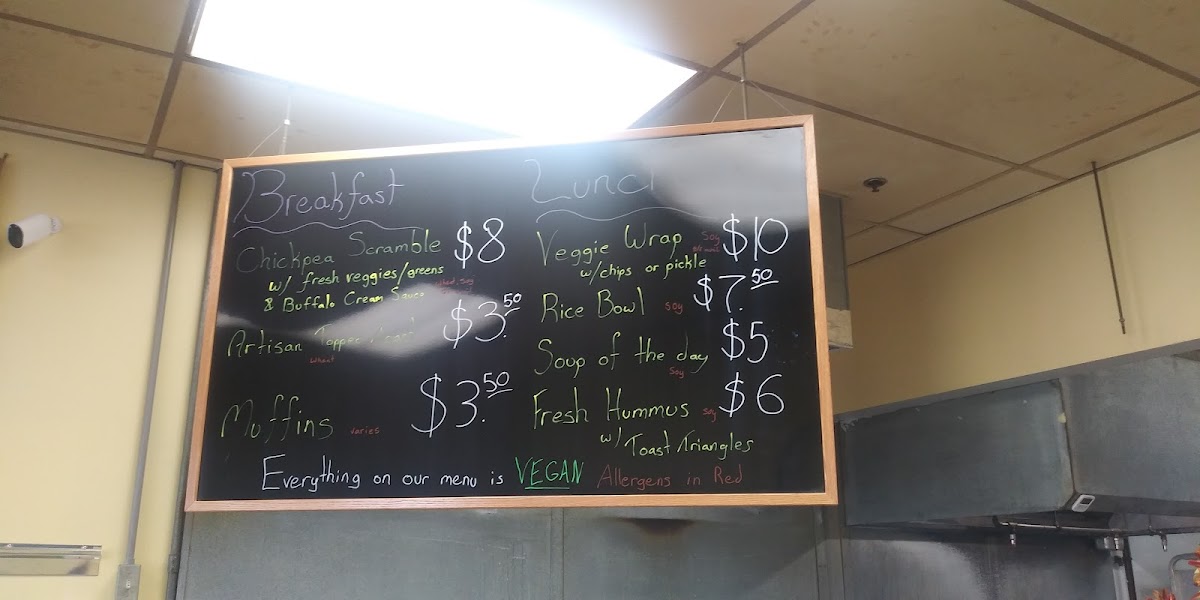 Breakfast
Chickpea Scramble $8
w/ fresh veggies/greens
& Buffalo Cream Sauce
Artisan $3.50
wheat
Muffins varies $3.50
Lunch
Veggie Wrap Soy $10
w/chips or pickle
Rice Bowl Soy $7.50
Soup of the day $5
Soy
Fresh Hummus Soy $6
w/ Toast Triangles
Everything on our menu is VEGAN Allergens in Red